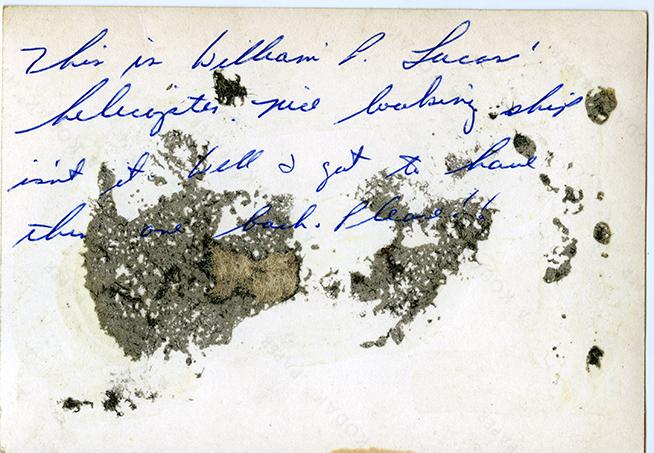 This is William P. Lucas'
helicopter. nice looking ship
isn't it. Well I got to have
this one back. Please!!